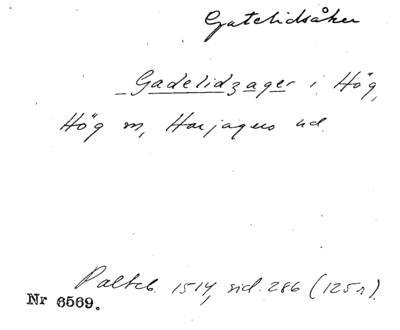 Gatelidsåker
Gadelidzager i Hög,
Hög sn, Harjagers hd.
Palteb. 1514, sid. 286 (125 r).
Nr 6569.